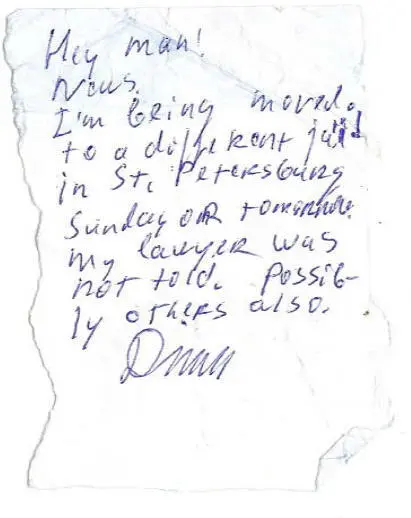 Hey man!
News.
I'm being moved
to a different jail
in St. Petersburg
Sunday or tomorrow.
my lawyer was
not told. Possib-
ly others also.